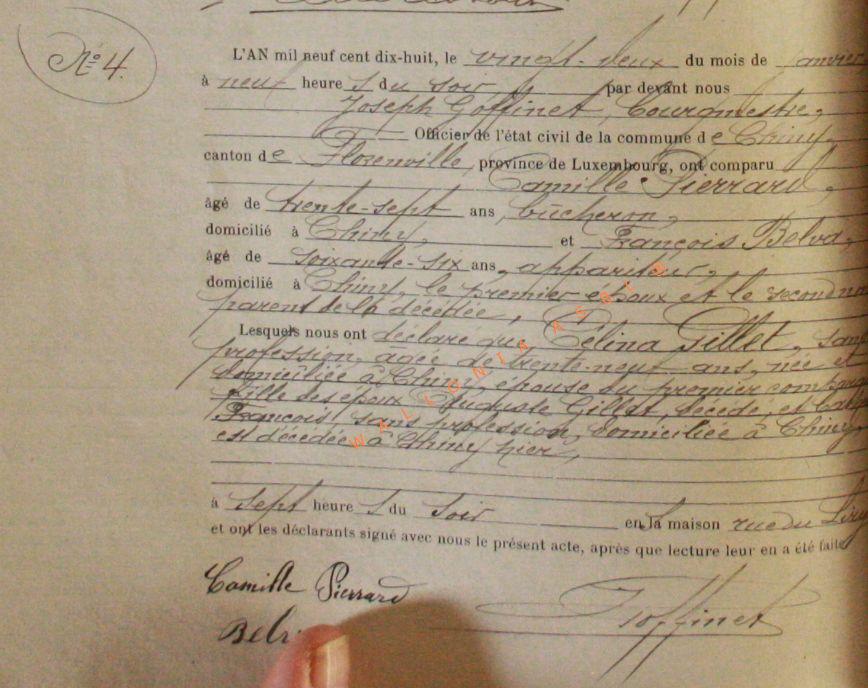 N° 4.
L'AN mil neuf cent dix-huit, le vingt-deux du mois de janvier
à neuf heures du soir par devant nous
Joseph Goffinet, Bourgmestre,
Officier de l'état civil de la commune de Chiny,
canton de Florenville, province de Luxembourg, ont comparu
Camille Pierrard,
âgé de trente-sept ans, bûcheron,
domicilié à Chiny, et François Belva,
âgé de soixante-six ans, appariteur,
domicilié à Chiny, le premier époux et le second non
parent de la décédée,
Lesquels nous ont déclaré que Célina Gillet, sans
profession, agée de trente-neuf ans, née et
domiciliée à Chiny épouse du premier
fille des epoux Auguste Gillet, décédé, et
François sans profession, domiciliée à Chiny,
est décédée à Chiny hier,
à sept heures du soir en la maison rue du
et ont les déclarants signé avec nous le présent acte, après que lecture leur en a été faite
Camille Pierrard
Goffinet
WALLONIA ASBL